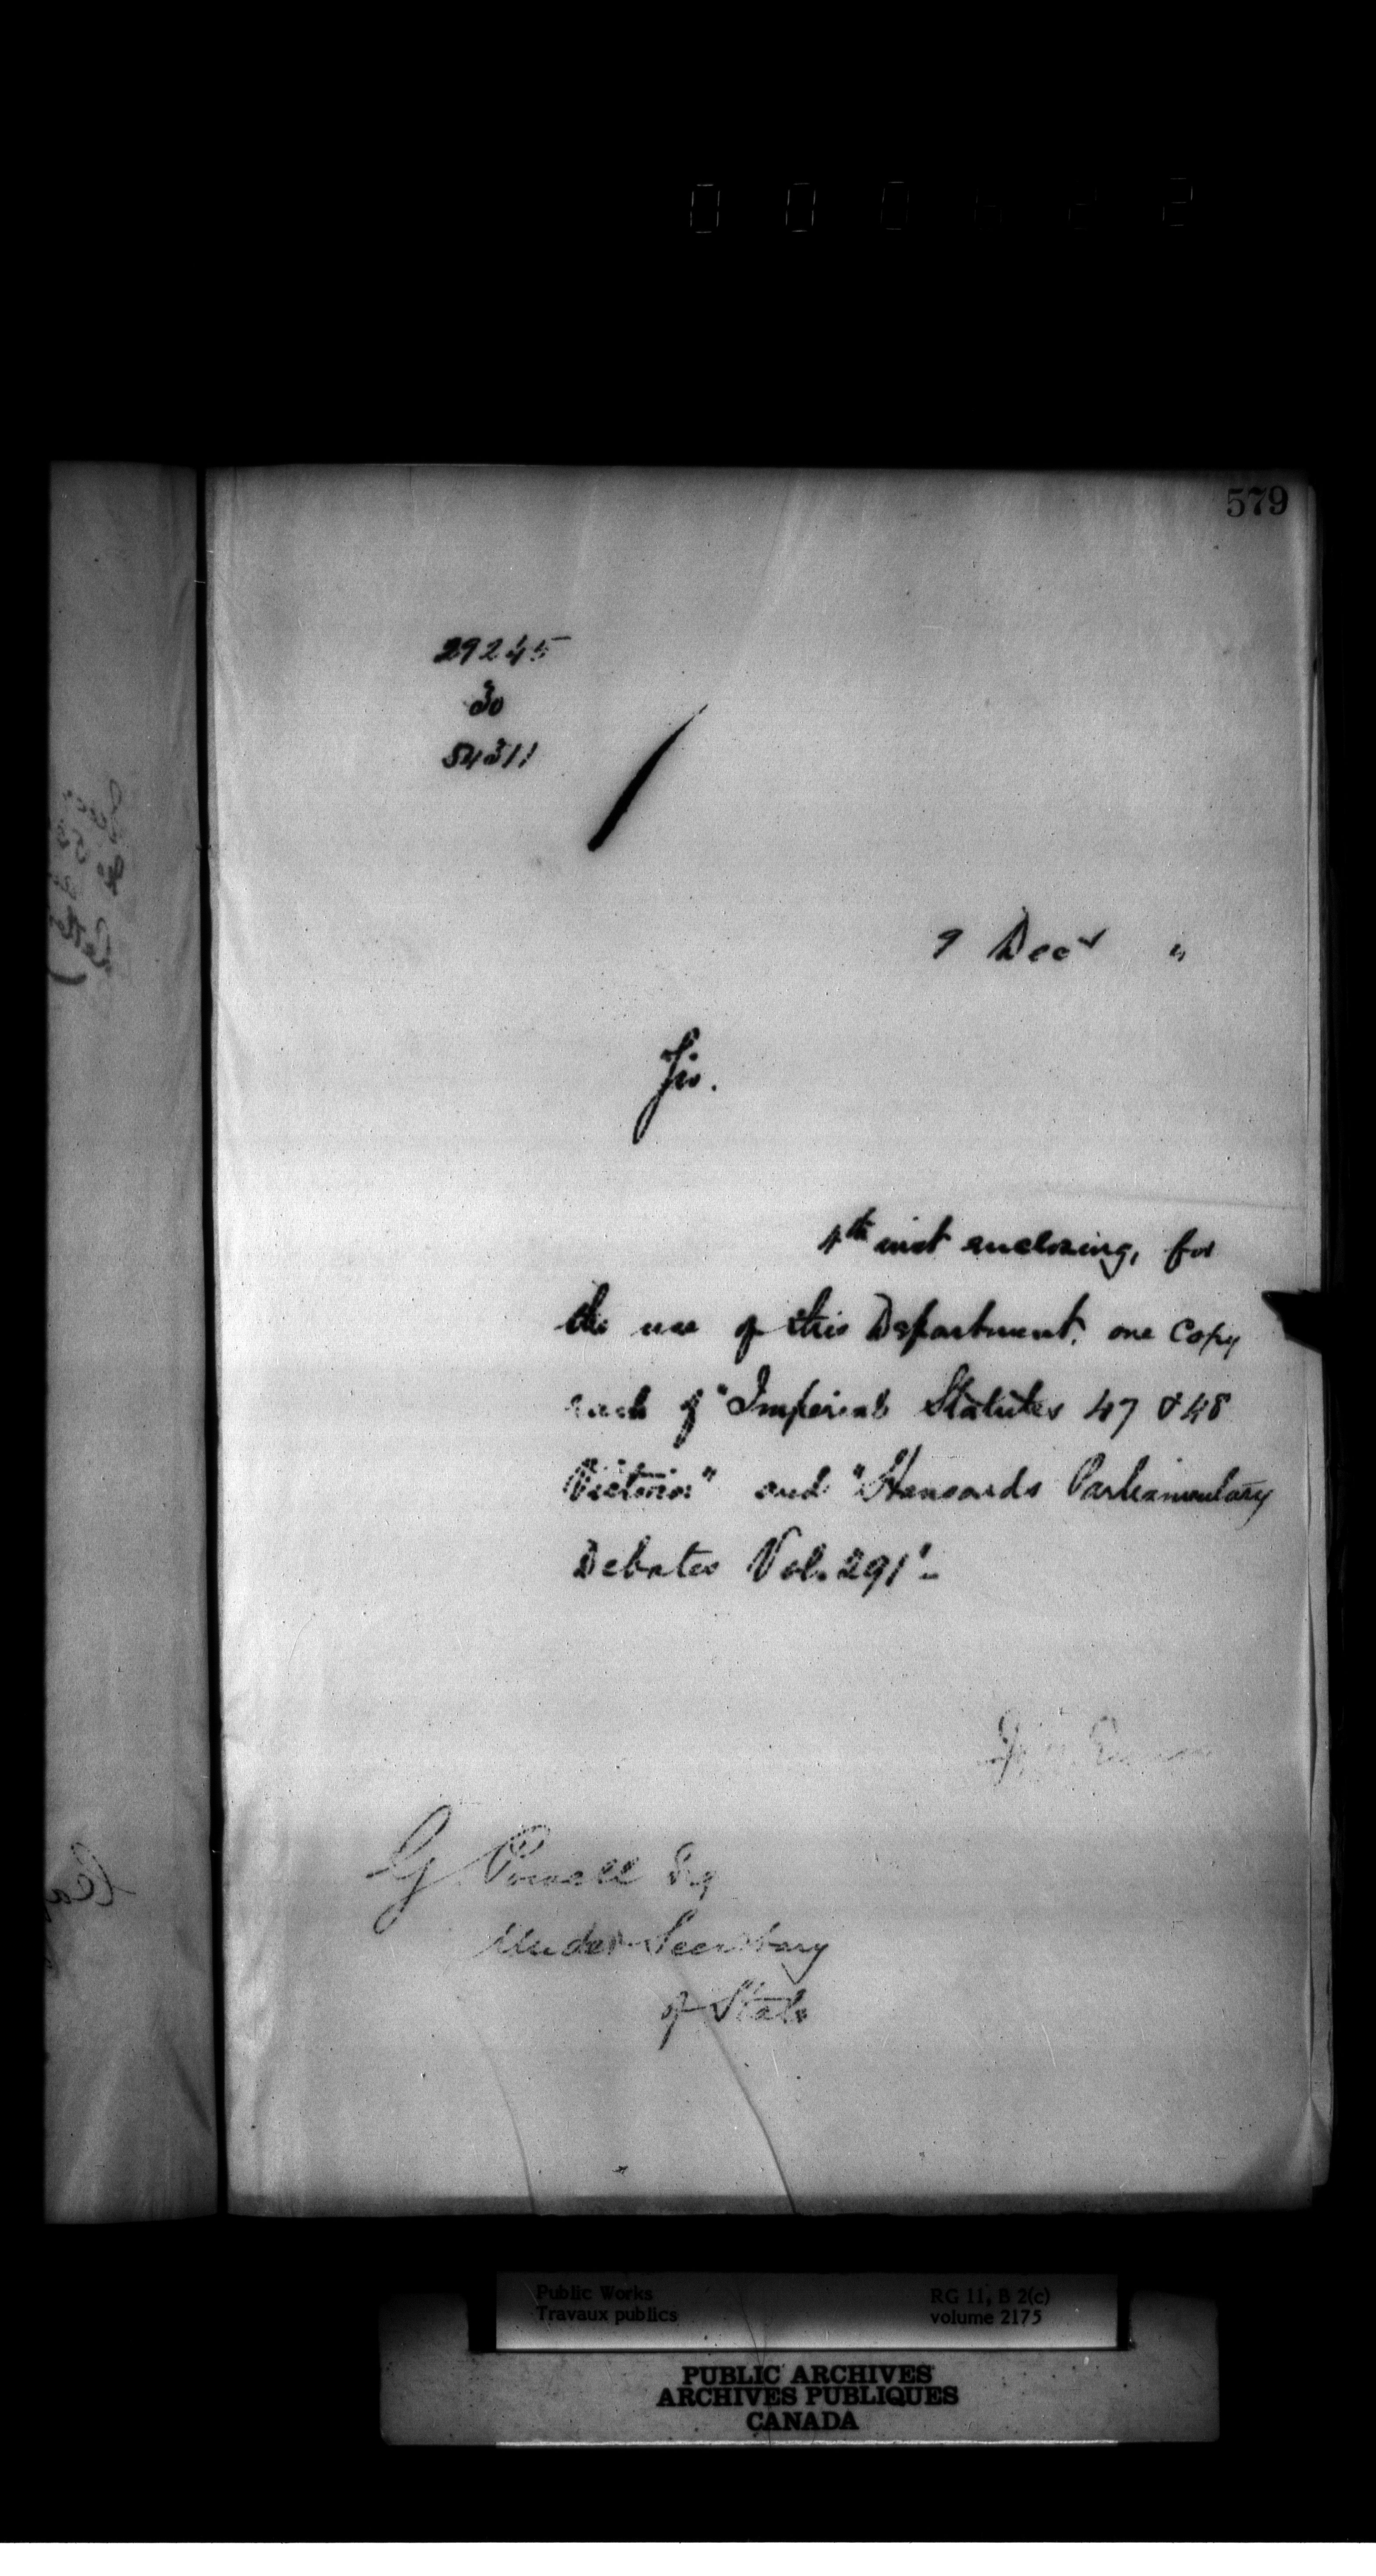 579
29245
30
54311
9 Decr "
Sir.
4th inst enclosing, for
the use of this Department, one Copy
each of "Imperial Statutes 47 & 48
Victoria" and "Hansards Parliamentary
Debates Vol. 291"
G Powell Esq
Under Secretary
of State
Public Works
Travaux publics
RG 11, B 2(c)
volume 2175
PUBLIC ARCHIVES
ARCHIVES PUBLIQUES
CANADA